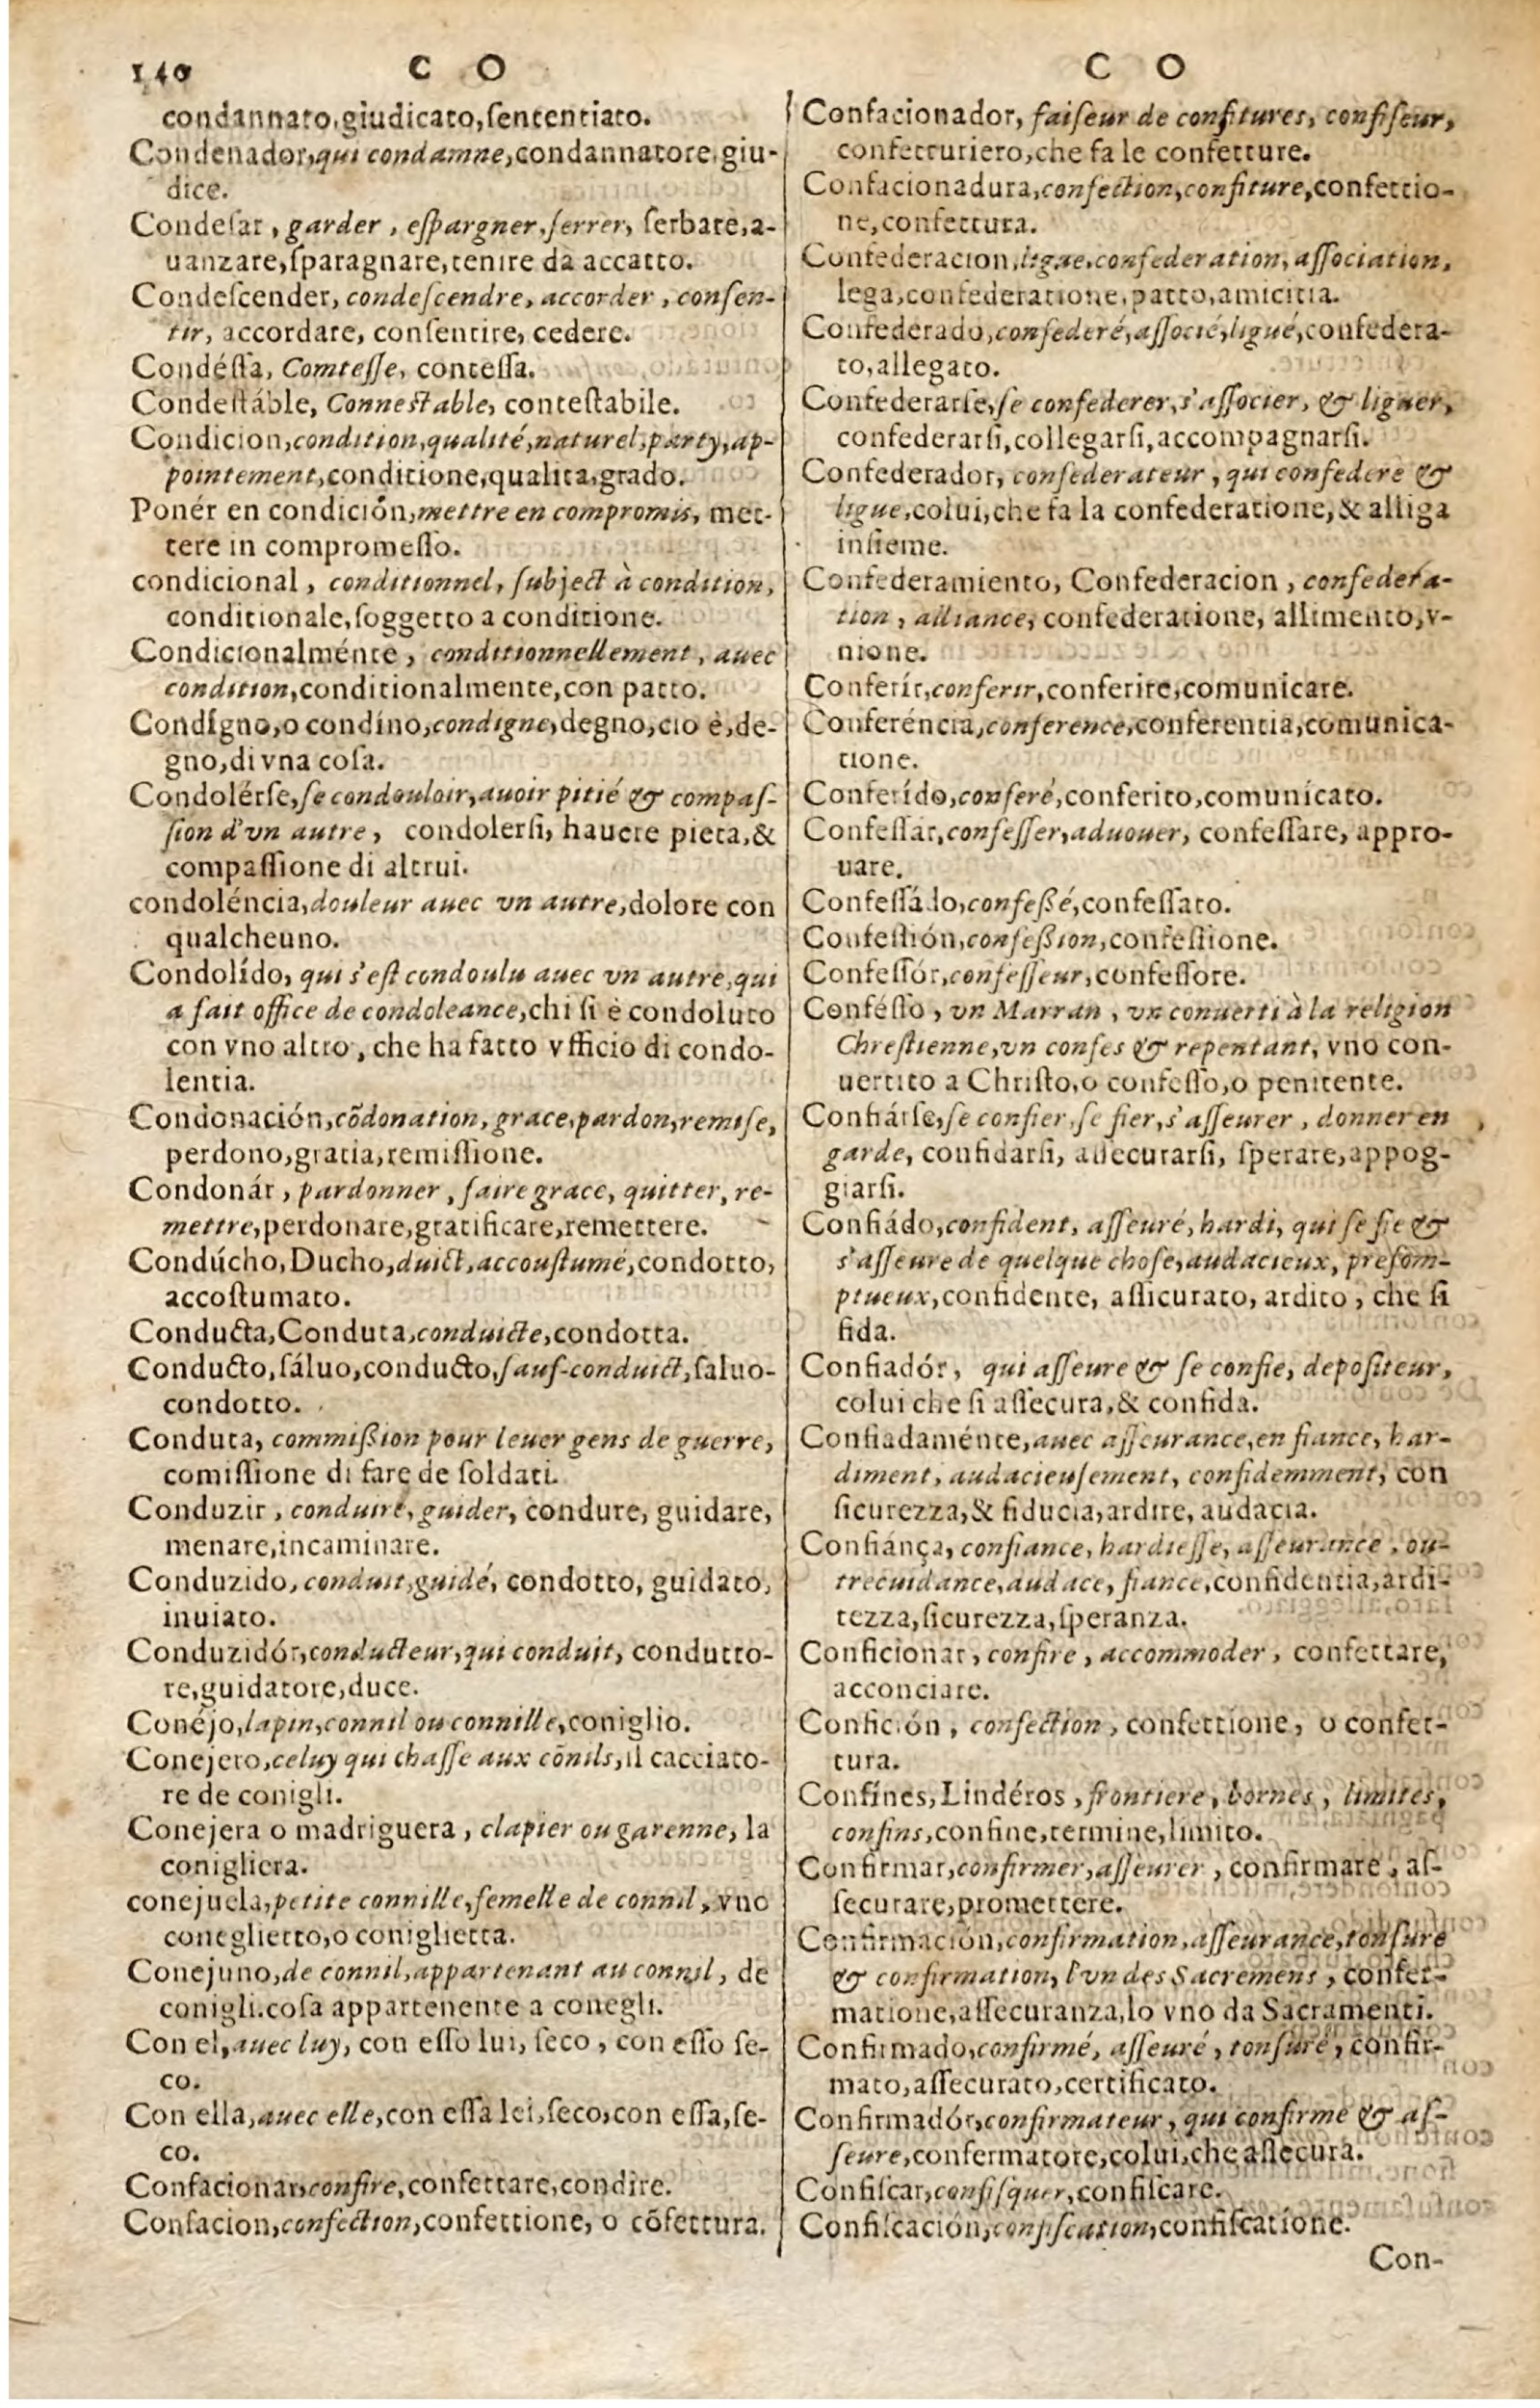 140 C O
condannato, giudicato, ſententiato.
Condenador, qui condamne, condannatore, giu-
dice.
Condeſar, garder, eſpargner, ſerrer, ſerbare, a-
uanzare, ſparagnare, tenire da accatto.
Condeſcender, condeſcendre, accorder, conſen-
tir, accordare, conſentire, cedere.
Condéſſa, Comteſſe, conteſſa.
Condeſtáble, Conneſtable, conteſtabile.
Condicion, condition, qualité, naturel, party, ap-
pointement, conditione, qualita, grado.
Ponér en condición, mettre en compromis, met-
tere in compromeſſo.
condicional, conditionnel, ſubject à condition,
conditionale, ſoggetto a conditione.
Condicionalménte, conditionnellement, auec
condition, conditionalmente, con patto.
Condígno, o condíno, condigne, degno, cio è, de-
gno, di vna coſa.
Condolérſe, ſe condouloir, auoir pitié & compaſ-
ſion d'vn autre, condolerſi, hauere pieta, &
compaſſione di altrui.
condoléncia, douleur auec vn autre, dolore con
qualcheuno.
Condolído, qui s'eſt condoulu auec vn autre, qui
a fait office de condoleance, chi ſi è condoluto
con vno altro, che ha fatto vfficio di condo-
lentia.
Condonación, cõdonation, grace, pardon, remiſe,
perdono, gratia, remiſſione.
Condonár, pardonner, faire grace, quitter, re-
mettre, perdonare, gratificare, remettere.
Condúcho, Ducho, duict, accouſtumé, condotto,
accoſtumato.
Conducta, Conduta, conduicte, condotta.
Conducto, ſáluo, conducto, ſauf-conduict, ſaluo-
condotto.
Conduta, commiſsion pour leuer gens de guerre,
comiſſione di fare de ſoldati.
Conduzir, conduire, guider, condure, guidare,
menare, incaminare.
Conduzido, conduit, guidé, condotto, guidato,
inuiato.
Conduzidór, conducteur, qui conduit, condutto-
re, guidatore, duce.
Conéjo, lapin, connil ou connille, coniglio.
Conejero, celuy qui chaſſe aux cõnils, il cacciato-
re de conigli.
Conejera o madriguera, clapier ou garenne, la
conigliera.
conejuela, petite connille, femelle de connil, vno
coneglietto, o coniglietta.
Conejuno, de connil, appartenant au connil, de
conigli. coſa appartenente a conegli.
Con el, auec luy, con eſſo lui, ſeco, con eſſo ſe-
co.
Con ella, auec elle, con eſſa lei, ſeco, con eſſa, ſe-
co.
Confacionar, confire, confettare, condire.
Confacion, confection, confettione, o cõfettura.
C O
Confacionador, faiſeur de confitures, confiſeur,
confetturiero, che fa le confetture.
Confacionadura, confection, confiture, confettio-
ne, confettura.
Confederacion, ligue, confederation, aſſociation,
lega, confederatione, patto, amicitia.
Confederado, confederé, aſſocié, ligué, confedera-
to, allegato.
Confederarſe, ſe confederer, s'aſſocier, & liguer,
confederarſi, collegarſi, accompagnarſi.
Confederador, confederateur, qui confedere &
ligue, colui, che fa la confederatione, & alliga
inſieme.
Confederamiento, Confederacion, confedera-
tion, alliance, confederatione, allimento, v-
nione.
Conferír, conferir, conferire, comunicare.
Conferéncia, conference, conferentia, comunica-
tione.
Conferído, conferé, conferito, comunicato.
Confeſſar, confeſſer, aduouer, confeſſare, appro-
uare.
Confeſſádo, confeſsé, confeſſato.
Confeſſión, confeſsion, confeſſione.
Confeſſór, confeſſeur, confeſſore.
Conféſſo, vn Marran, vn conuerti à la religion
Chreſtienne, vn confes & repentant, vno con-
uertito a Chriſto, o confeſſo, o penitente.
Confiárſe, ſe confier, ſe fier, s'aſſeurer, donner en
garde, confidarſi, aſſecurarſi, ſperare, appog-
giarſi.
Confiádo, confident, aſſeuré, hardi, qui ſe fie &
s'aſſeure de quelque choſe, audacieux, preſom-
ptueux, confidente, aſſicurato, ardito, che ſi
fida.
Confiadór, qui aſſeure & ſe confie, depoſiteur,
colui che ſi aſſecura, & confida.
Confiadaménte, auec aſſeurance, en fiance, har-
diment, audacieuſement, confidemment, con
ſicurezza, & fiducia, ardire, audacia.
Confiánça, confiance, hardieſſe, aſſeurance, ou-
trecuidance, audace, fiance, confidentia, ardi-
tezza, ſicurezza, ſperanza.
Conficionar, confire, accommoder, confettare,
acconciare.
Confición, confection, confettione, o confet-
tura.
Confínes, Lindéros, frontiere, bornes, limites,
confins, confine, termine, limito.
Confirmar, confirmer, aſſeurer, confirmare, aſ-
ſecurare, promettere.
Confirmación, confirmation, aſſeurance, tonſure
& confirmation, l'vn des Sacremens, confer-
matione, aſſecuranza, lo vno da Sacramenti.
Confirmado, confirmé, aſſeuré, tonſuré, confir-
mato, aſſecurato, certificato.
Confirmadór, confirmateur, qui confirme & aſ-
ſeure, confermatore, colui, che aſſecura.
Confiſcar, confiſquer, confiſcare.
Confiſcación, confiſcation, confiſcatione.
Con-